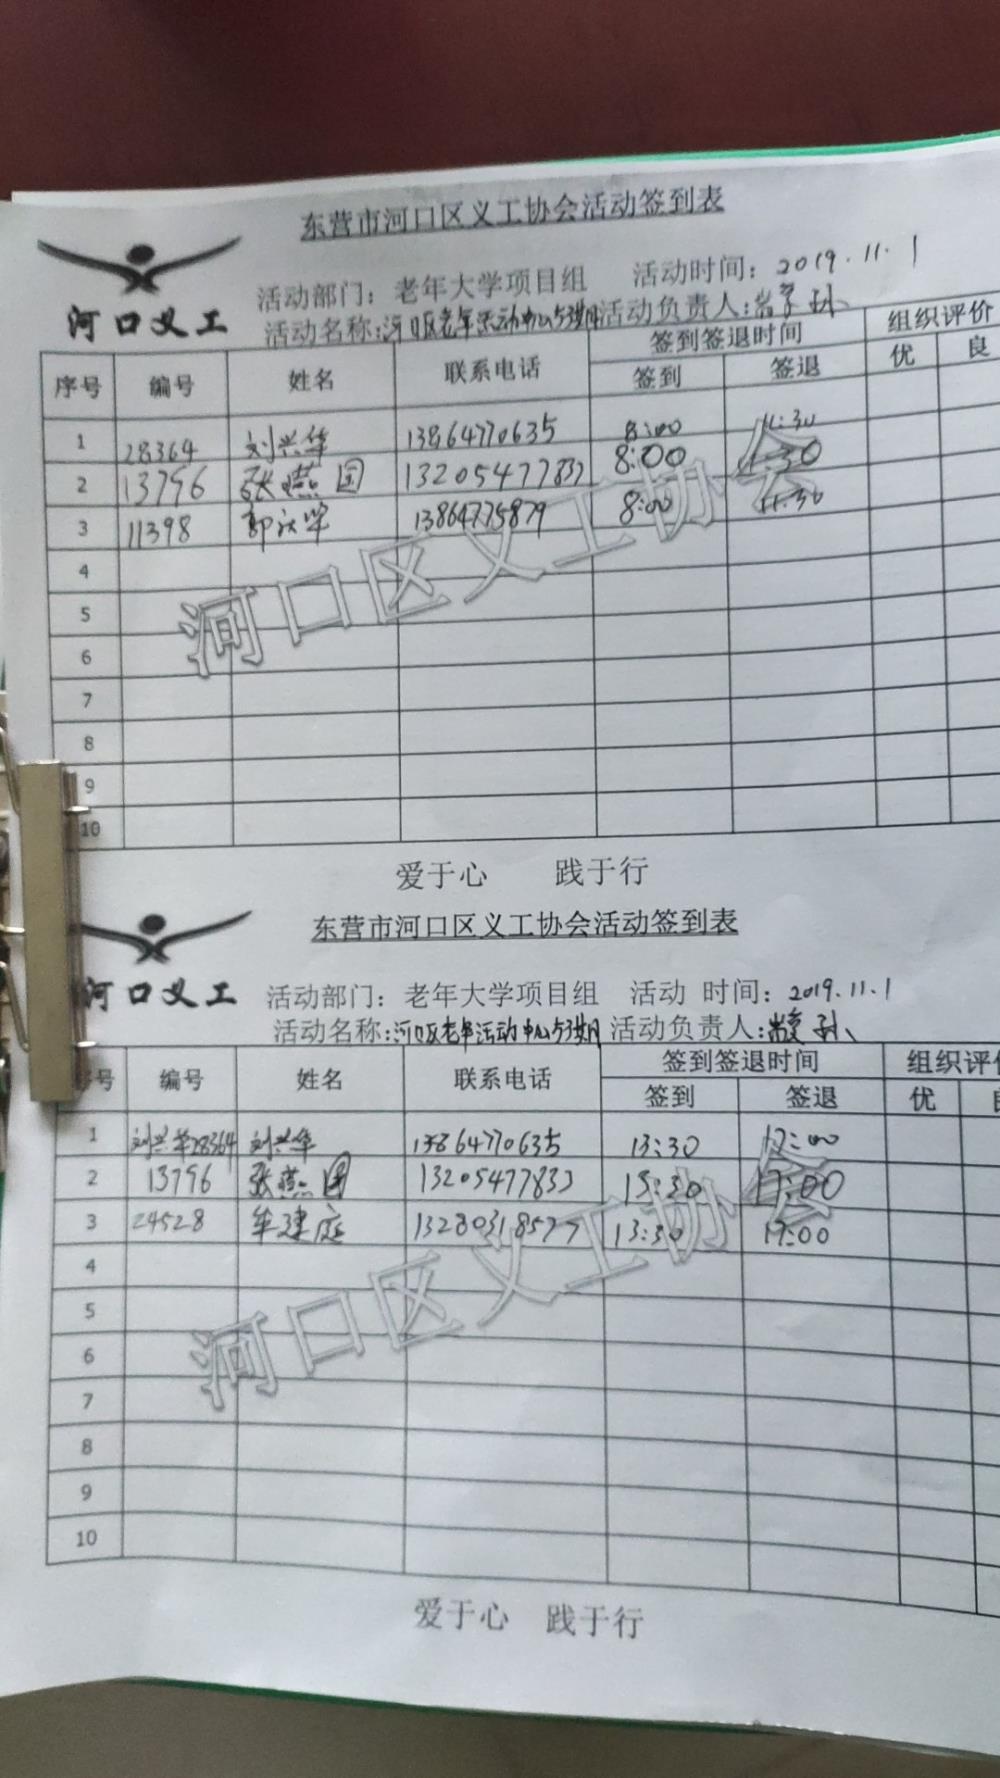 东营市河口区义工协会活动签到表
河口义工
活动部门：老年大学项目组 活动时间：2019.11.1
活动名称：河口区老年活动中心 活动负责人：
序号 编号 姓名 联系电话 签到签退时间 组织评价
签到 签退 优 良
1 28364 刘兴华 13864770635 8:00 11:30
2 13796 张燕团 13205477833 8:00 11:30
3 11398 郭 13864775879 8:00 11:30
4
5
6
7
8
9
10
河口区义工协会
爱于心 践于行
东营市河口区义工协会活动签到表
河口义工
活动部门：老年大学项目组 活动 时间：2019.11.1
活动名称：河口区老年活动中心 活动负责人：
序号 编号 姓名 联系电话 签到签退时间 组织评价
签到 签退 优 良
1 刘兴华28364 刘兴华 13864770635 13:30 17:00
2 13796 张燕团 13205477833 13:30 17:00
3 24528 牟建庭 13280318577 13:30 17:00
4
5
6
7
8
9
10
河口区义工协会
爱于心 践于行